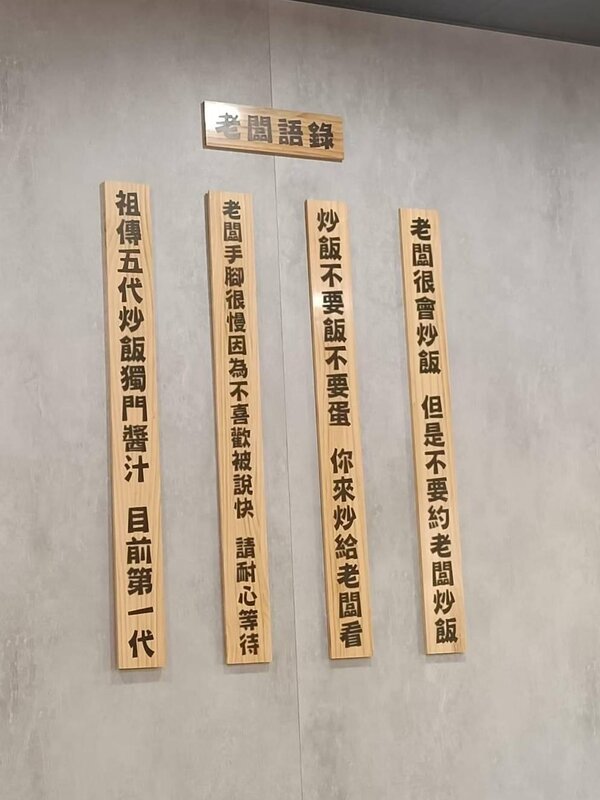 老闆語錄
老闆很會炒飯 但是不要約老闆炒飯
炒飯不要飯不要蛋 你來炒給老闆看
老闆手腳很慢因為不喜歡被說快 請耐心等待
祖傳五代炒飯獨門醬汁 目前第一代